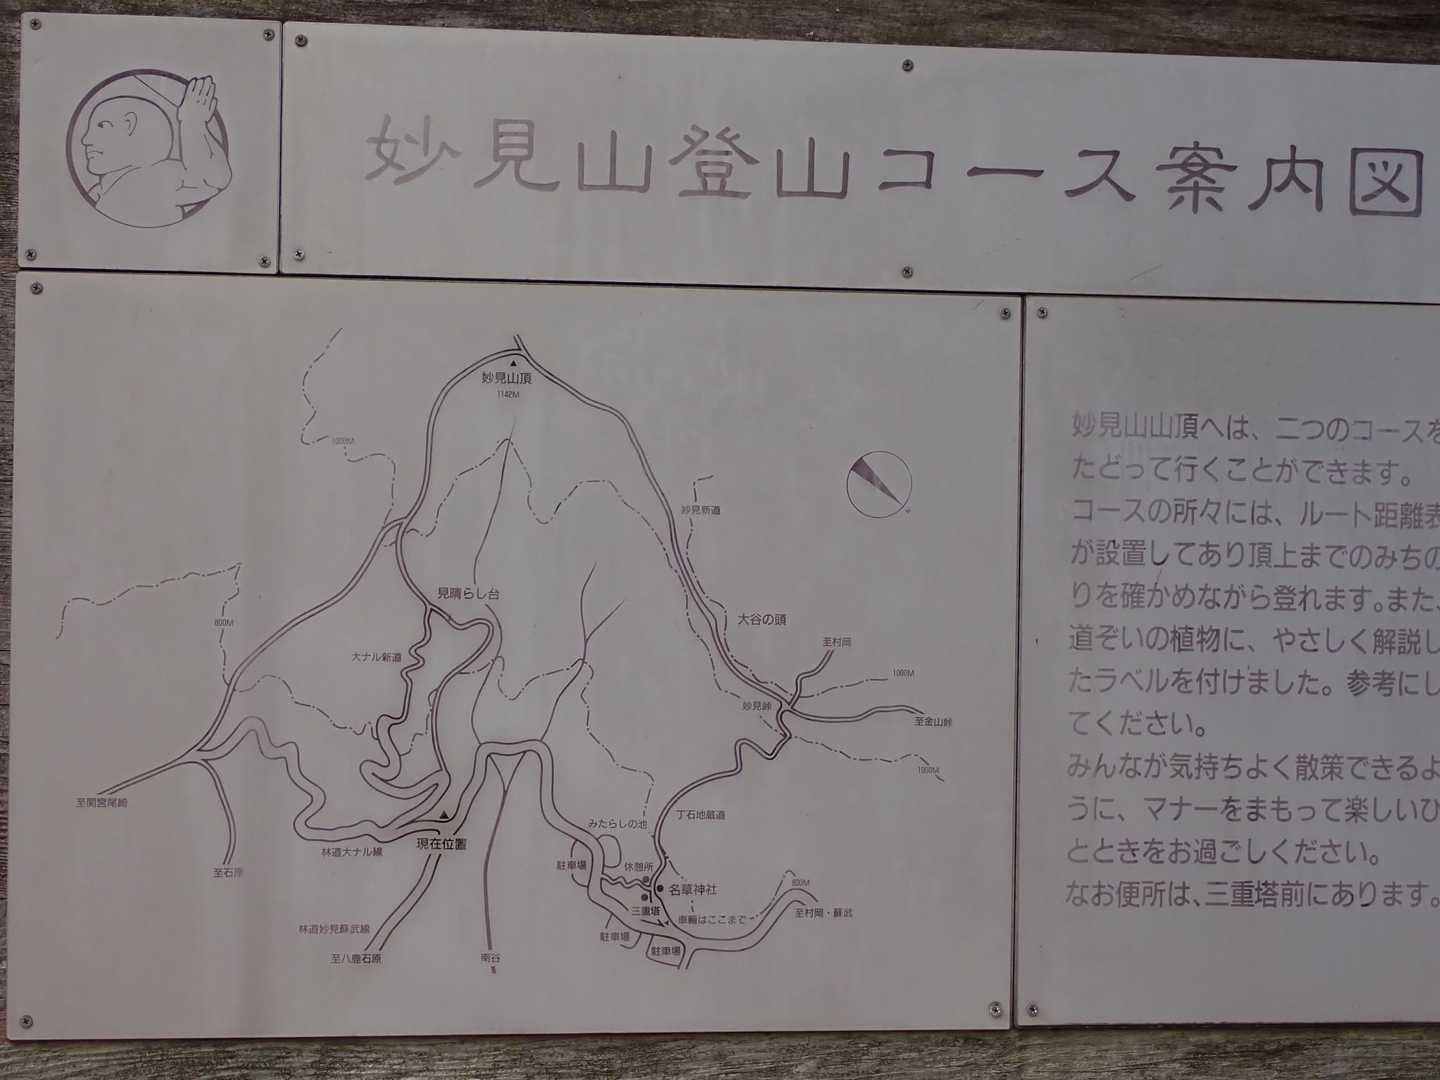 妙見山登山コース案内図
妙見山頂
1142M
1000M
妙見新道
見晴らし台
800M
大谷の頭
至村岡
大ナル新道
1000M
妙見峠
至金山峠
1000M
至関宮尾崎
丁石地蔵道
みたらしの池
現在位置
林道大ナル線
駐車場
休憩所
至石原
名草神社
800M
三重塔
車輛はここまで
至村岡・蘇武
林道妙見蘇武線
駐車場
駐車場
至八鹿石原
南谷
妙見山山頂へは、二つのコースを
たどって行くことができます。
コースの所々には、ルート距離表
が設置してあり頂上までのみちの
りを確かめながら登れます。また、
道ぞいの植物に、やさしく解説し
たラベルを付けました。参考にし
てください。
みんなが気持ちよく散策できるよ
うに、マナーをまもって楽しいひ
とときをお過ごしください。
なお便所は、三重塔前にあります。